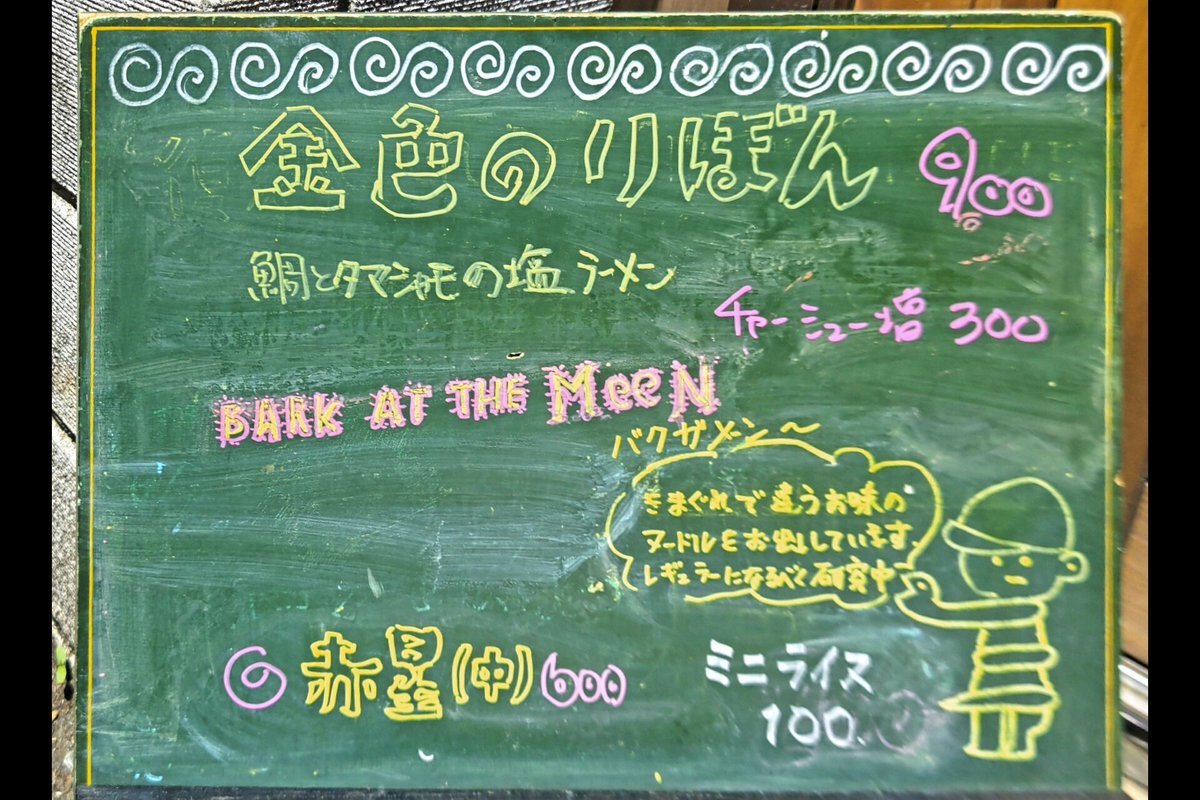 金色のりぼん 900
鯛とタマシャモの塩ラーメン
チャーシュー増 300
BARK AT THE MOON
バクザムーン〜
きまぐれで違うお味の
ヌードルをお出しています。
レギュラーになるべく研究中
赤星(中)600
ミニライス
100